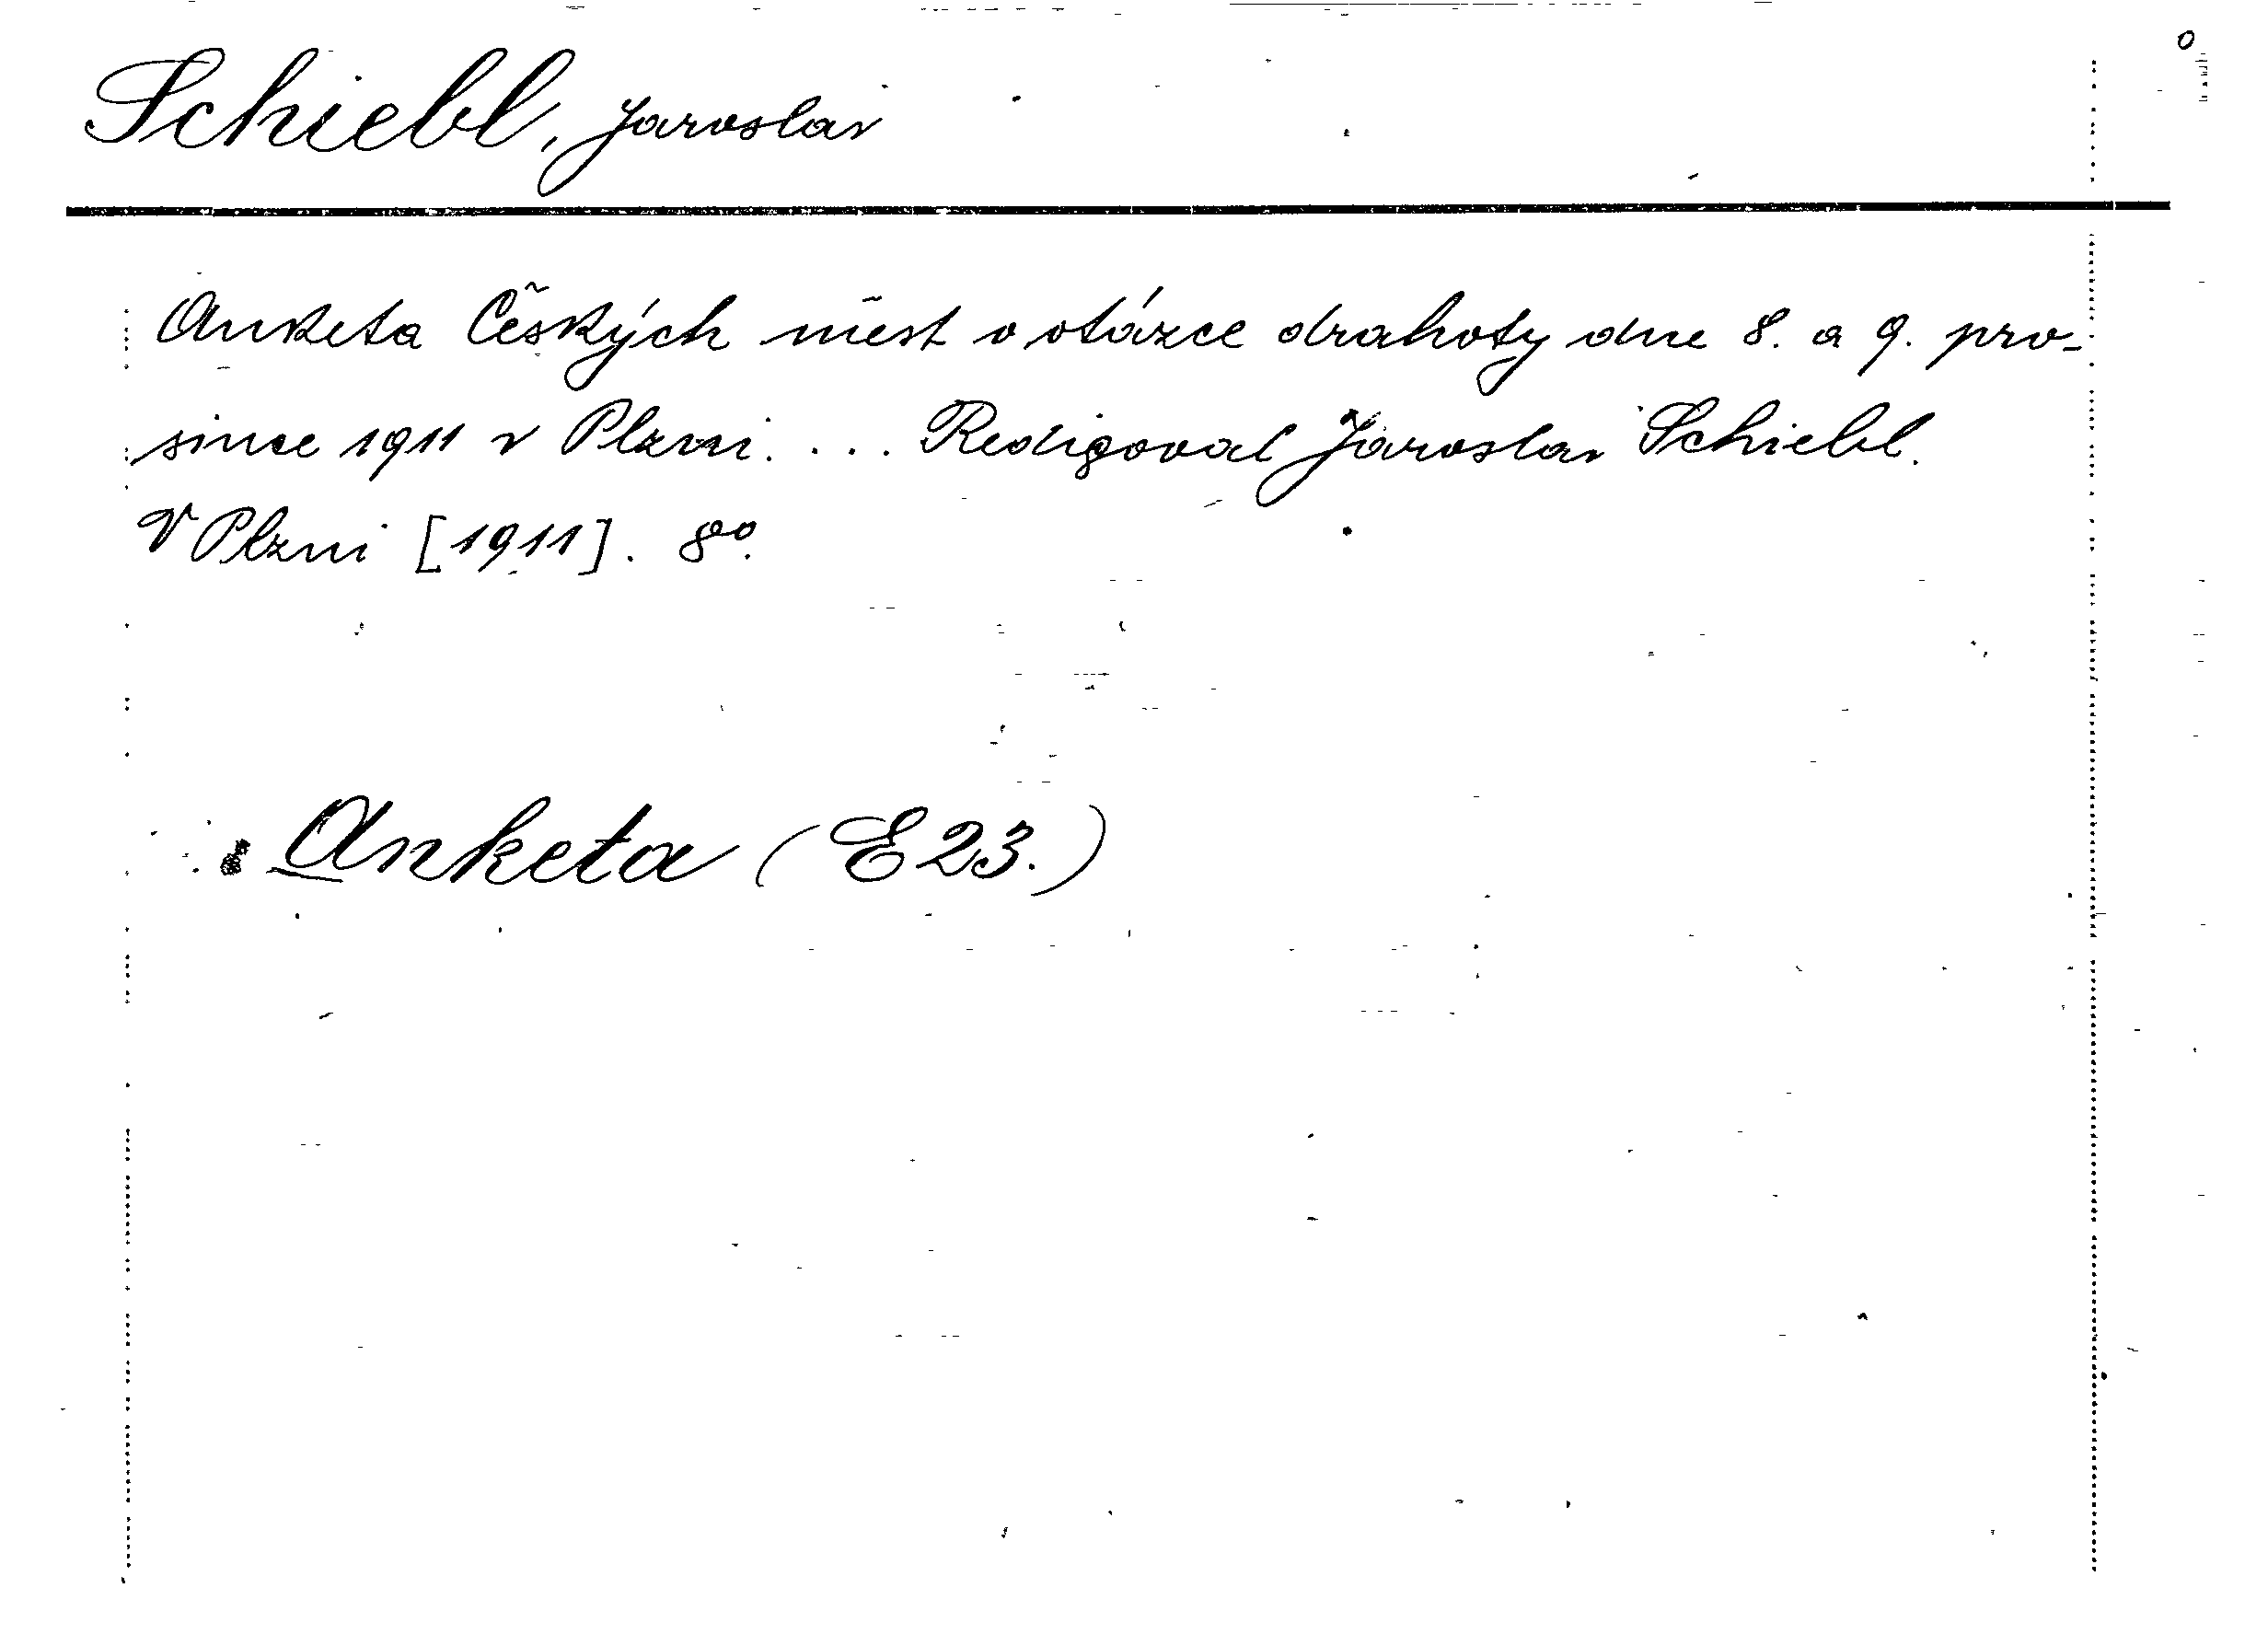 Schiebl, Jaroslav
Anketa Českých měst v otázce drahoty dne 8. a 9. pro-
since 1911 v Plzni. ... Redigoval Jaroslav Schiebl.
V Plzni [1911]. 8°.
Anketa (E23.)